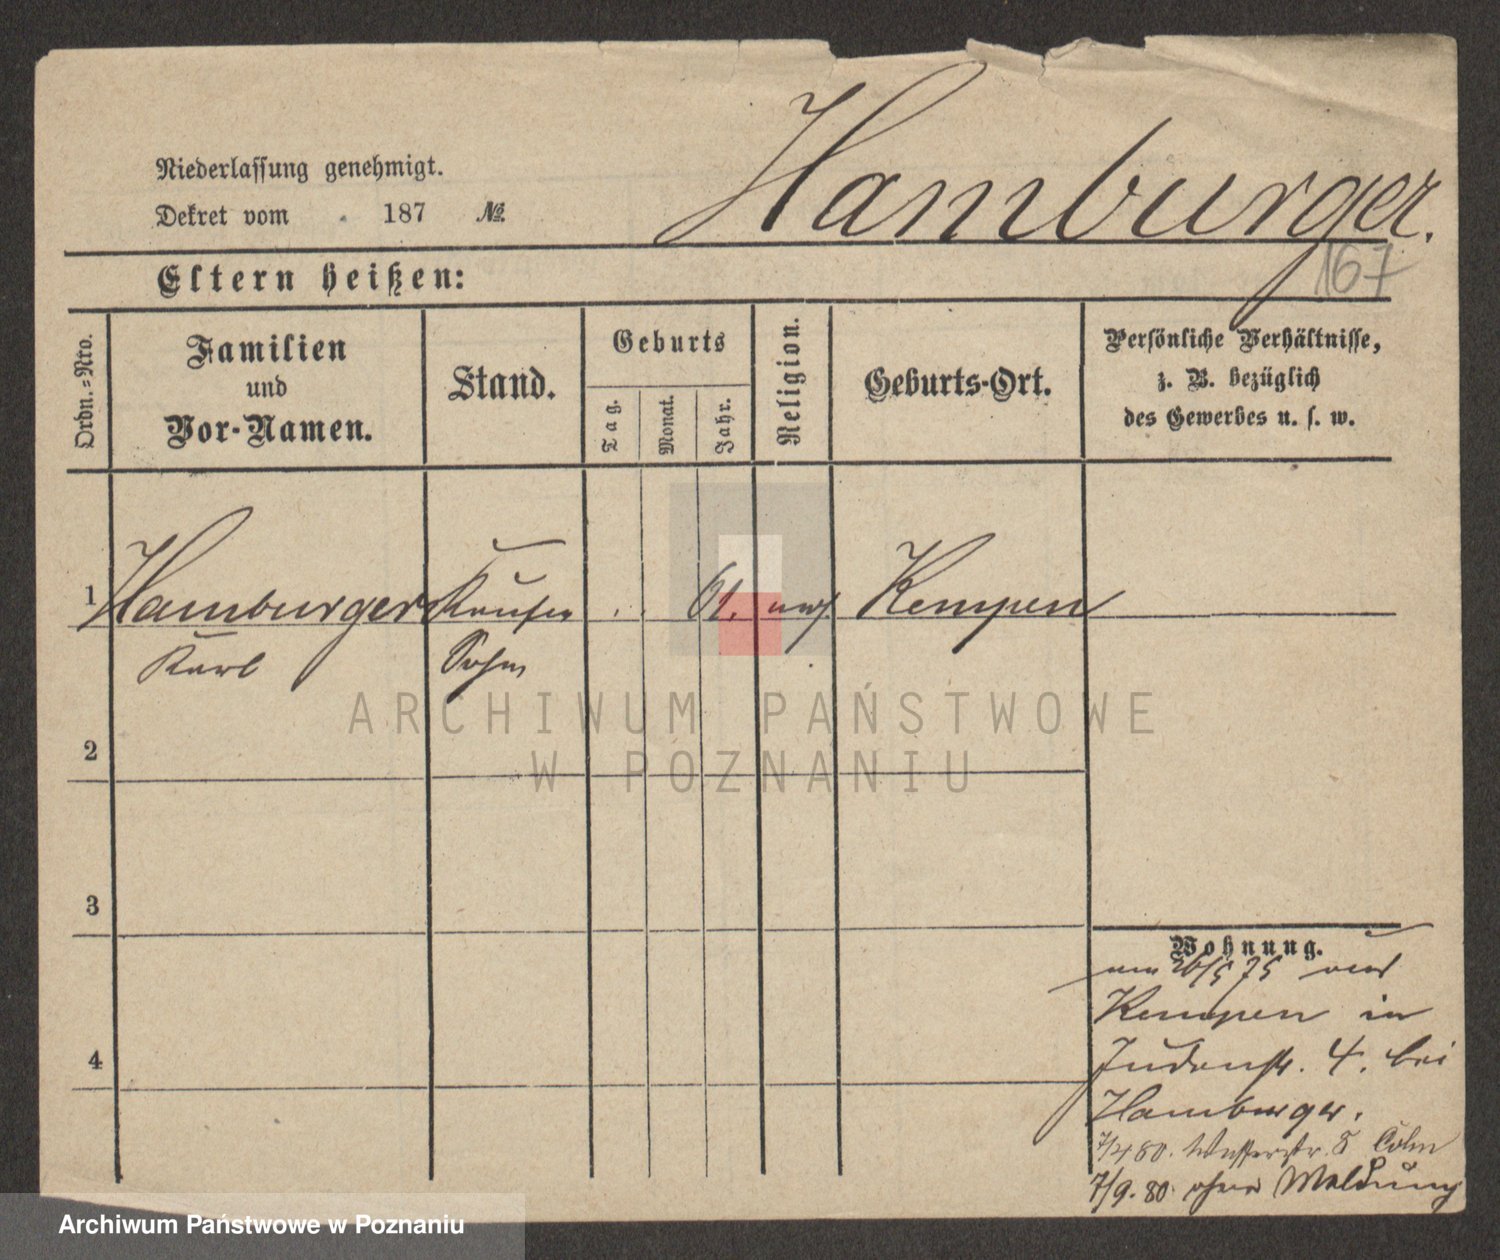 Hamburger.
Niederlassung genehmigt.
Dekret vom . 187 №.
167
Eltern heißen:
Ordn.=Nro.
Familien
und
Vor-Namen.
Stand.
Geburts
Tag.
Monat.
Jahr.
Religion.
Geburts-Ort.
Persönliche Verhältnisse,
z. B. bezüglich
des Gewerbes u. s. w.
1 Hamburger 61. Kempen
Karl Sohn
2
3
Wohnung.
26/5 75
Kempen in
4
Judenstr. 4. bei
Hamburger.
7/4 80. Wasserstr. 8 Cohn
7/9. 80 ohne Meldung
ARCHIWUM PAŃSTWOWE
W POZNANIU
Archiwum Państwowe w Poznaniu